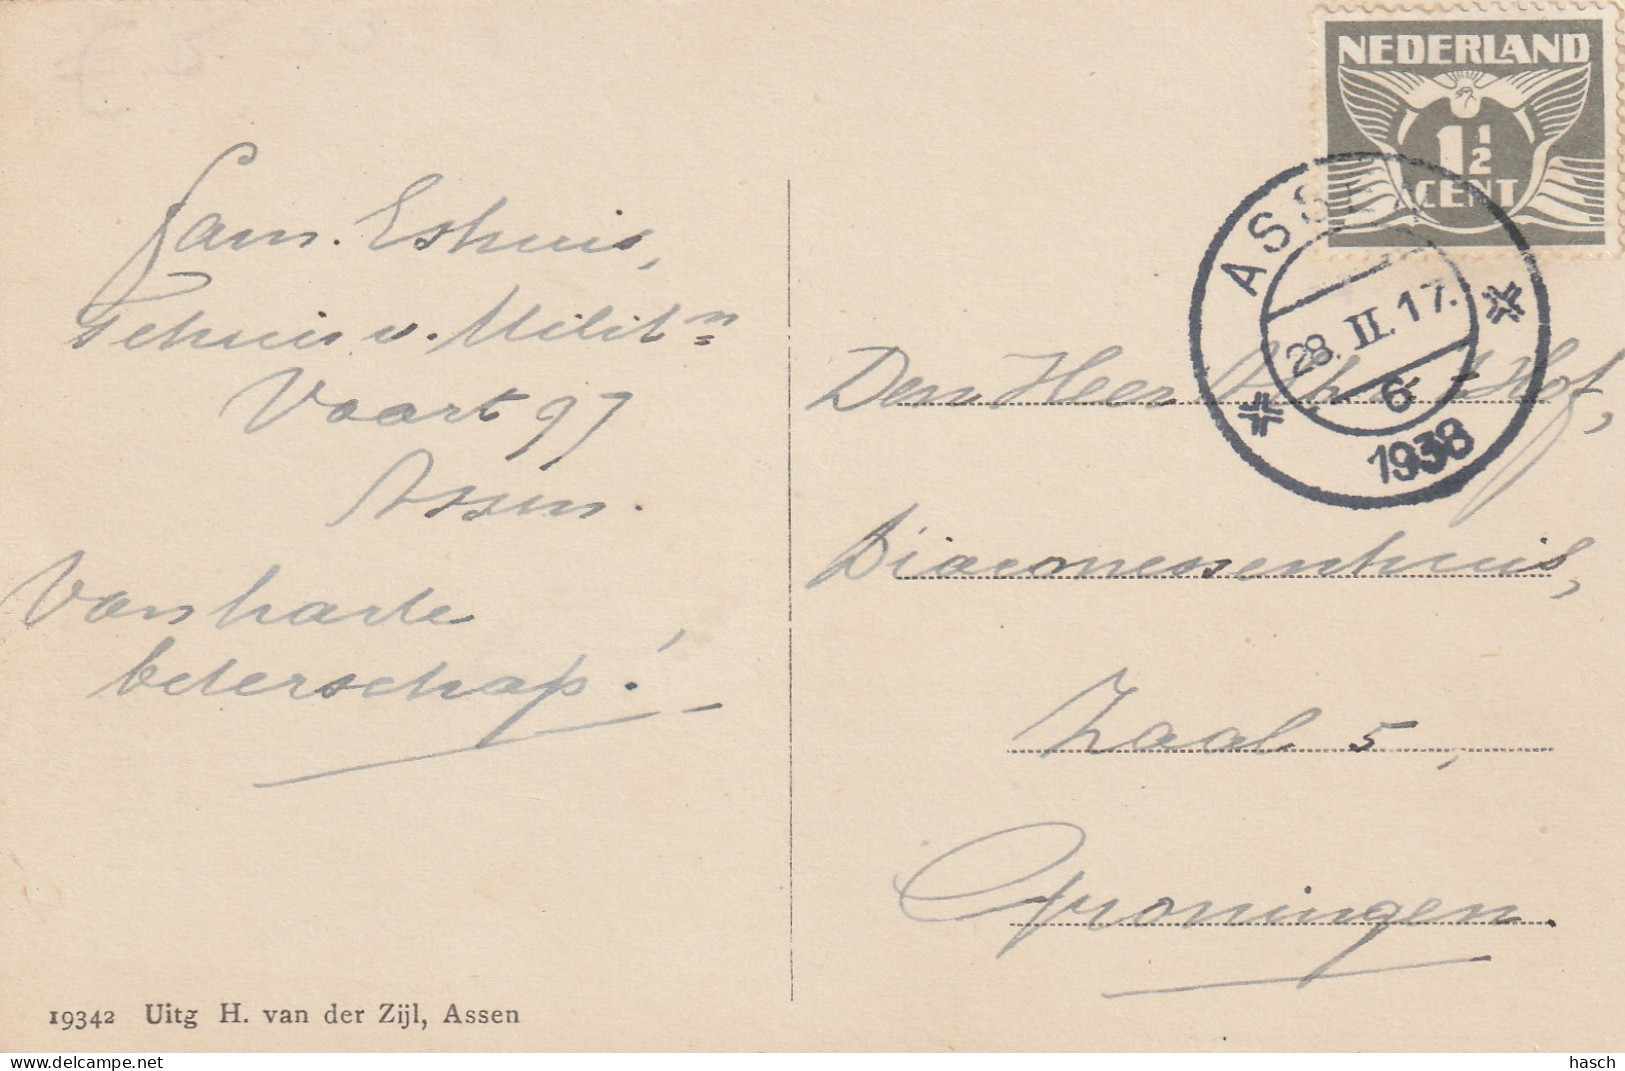 NEDERLAND
1½
CENT
ASSEN
28. II. 17.
6
1938
Fam. Eshuis,
Tehuis v. Milit n
Vaart 97
Assen.
Van harte
beterschap!
Den Heer Hof,
Diaconessenhuis,
Zaal 5,
Groningen.
19342 Uitg H. van der Zijl, Assen
hasch